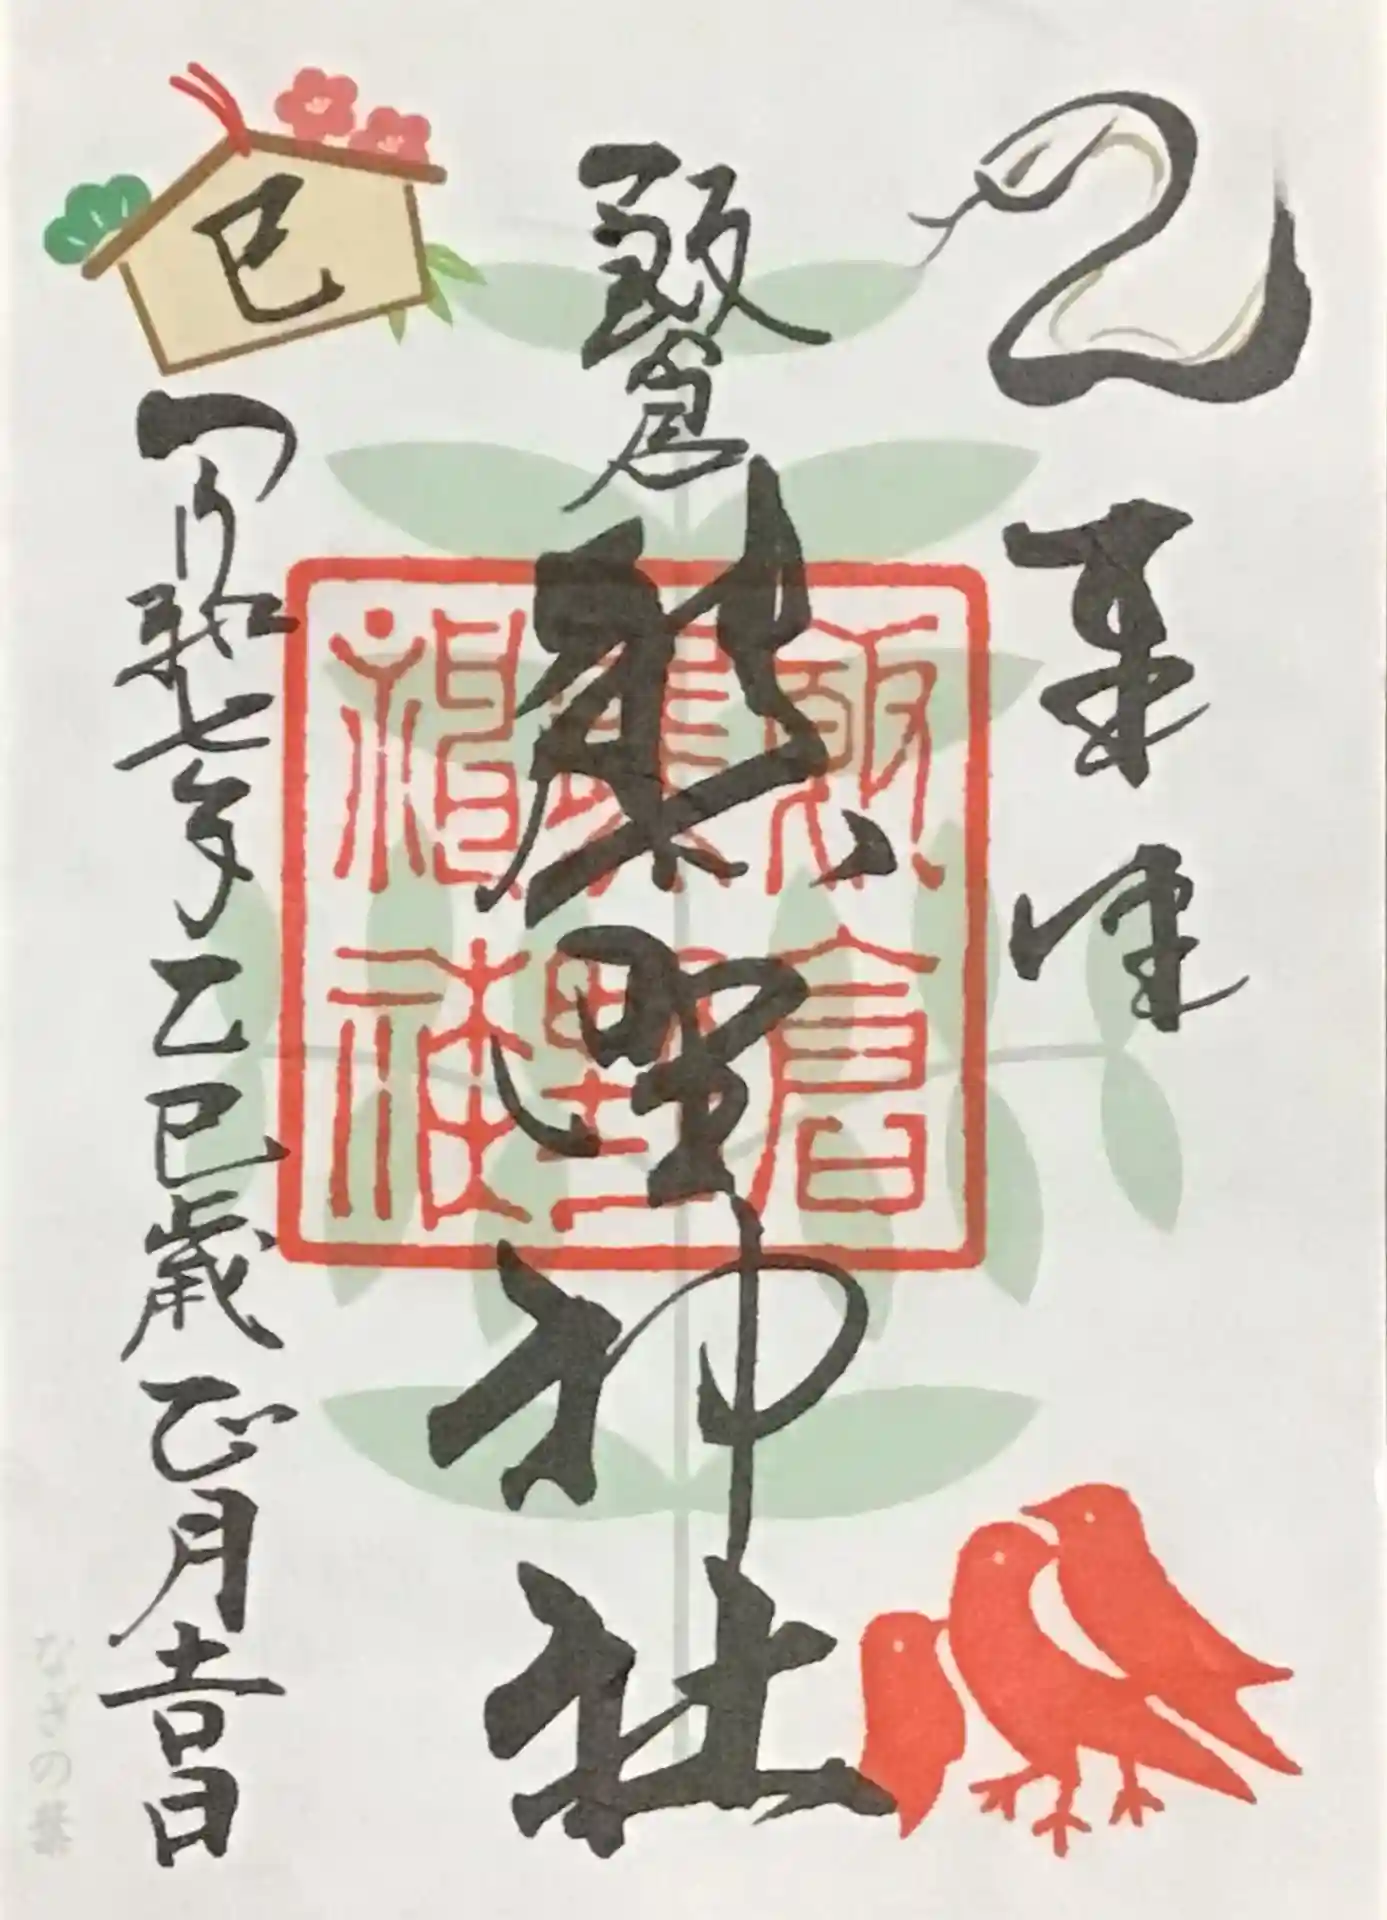 奉拝
飯倉熊野神社
飯倉
熊野
神社
巳
令和七年乙巳歳正月吉日
なぎの葉